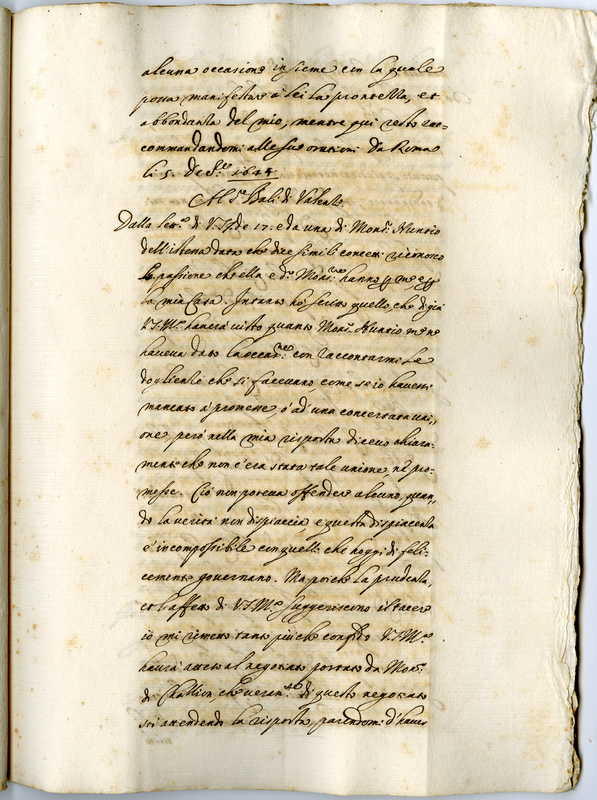 alcuna occasione insieme con la quale
possa manifestare à lei la prontezza, et
abbondanza del mio, mentre qui resto rac=
commandandomi alle sue orationi Da Roma
li 5. di S.re 1644
Al S.r Bali di Valenzè
Dalla let.ra di V.S. de 17. e da una di Mons.r Nuntio
dell'istessa data che dice simili concetti riconosco
la passione che ella e d.o Mons.re hanno p me e p
la mia Casa. Intanto hò scritto quello, che di già
V.S.Ill.ma haverà visto quanto Mons.r Nuntio me ne
haveva dato l'occas.ne con raccontarmi le
doglienze che si facevano come se io havessi
mancato à promesse, ò ad una concertata uni=
one, però nella mia risposta dicevo chiara=
mente che non c'era stata tale unione, nè pro=
messe. Ciò non poteva offender alcuno, quan=
do la verità non dispiaccia, e questa dispiacenza
è incompossibile con quelli che hoggi di feli=
cemente governano. Ma poiche la prudenza,
et l'affetto di V.S.Ill.ma suggeriscono il tacere
io mi rimetto tanto più che confido V.S.Ill.ma
haurà atteso al negotiato portato da Mons.r
di che di questo negotiato
stò attendendo la risposta, parendomi d'haver